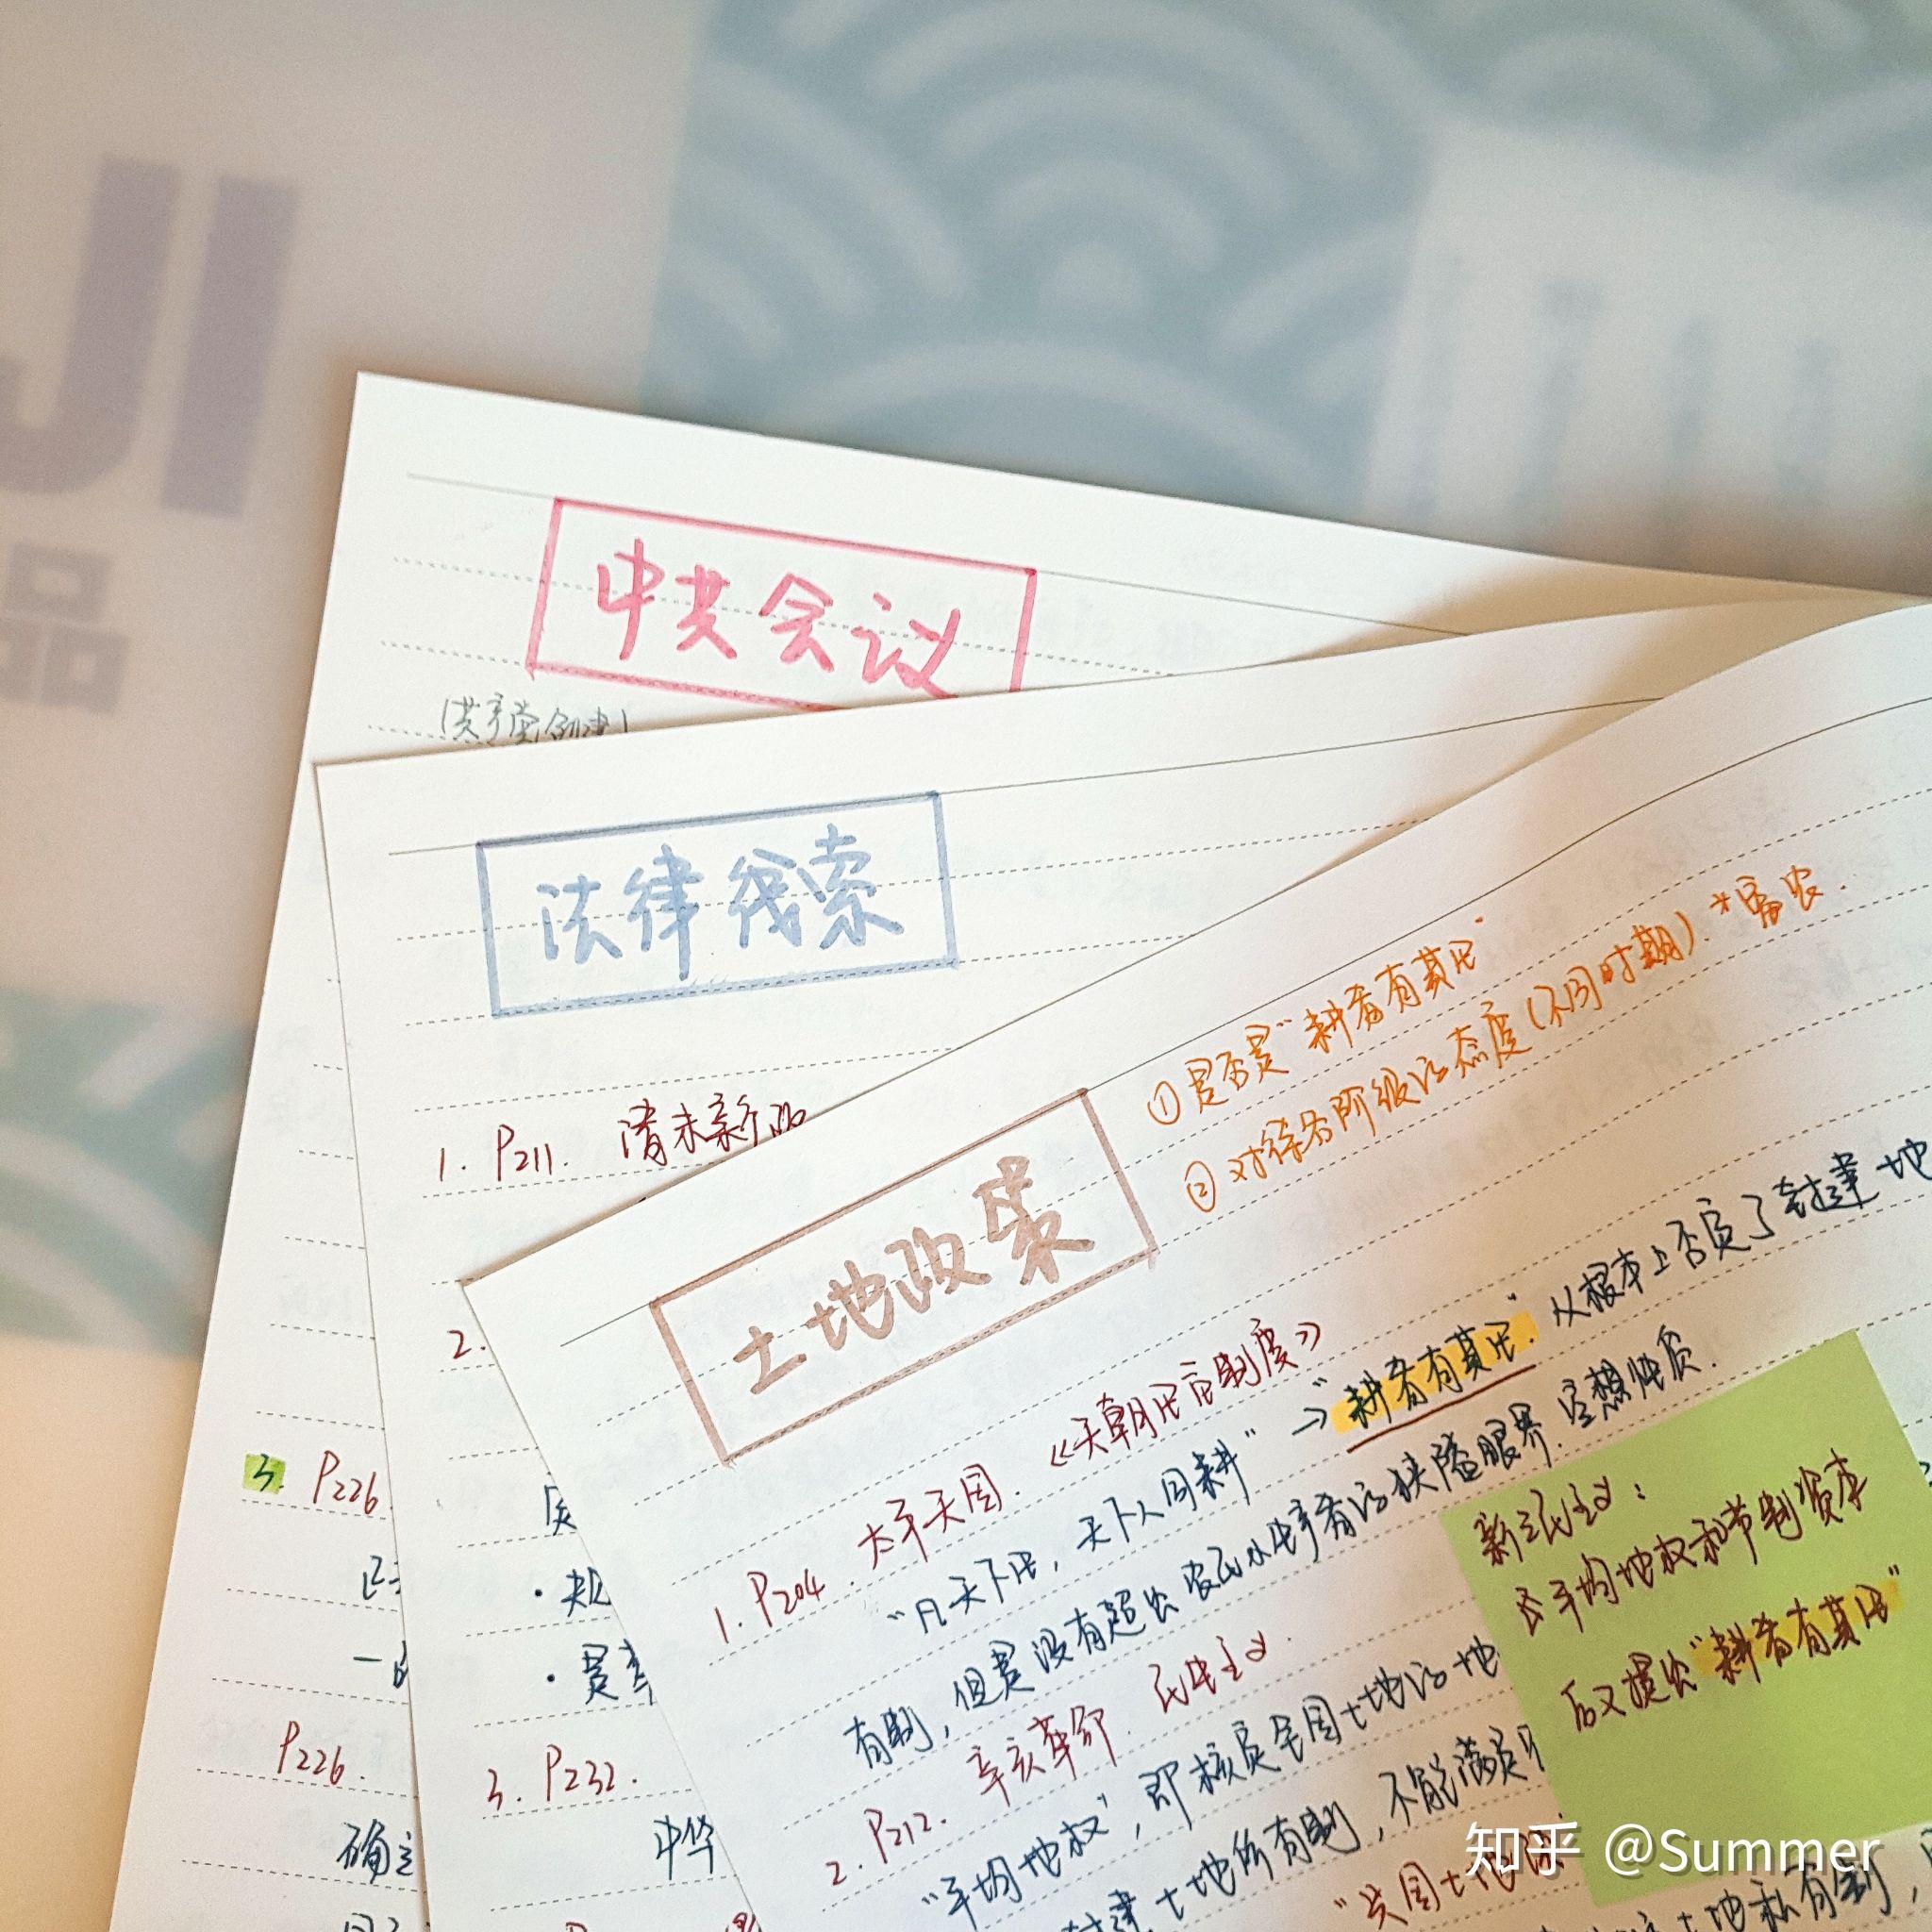 JI
品
中共会议
(共产党创建)
3. P226
P226.
确立
法律线索
1. P211. 清末新政
2.
3. P232.
中华
土地政策
①是否是“耕者有其田”
②对待各阶级的态度(不同时期). *富农.
1. P204. 太平天国. 《天朝田亩制度》
“凡天下田, 天下人同耕” → “耕者有其田”. 从根本上否定了封建地
有制, 但是没有超出农民小生产者的狭隘眼界. 空想性质.
2. P212. 辛亥革命. 民生主义.
“平均地权”, 即核定全国土地的地
封建土地所有制, 不能满足
新三民主义:
含平均地权和节制资本
后又提出“耕者有其田”
知乎 @Summer